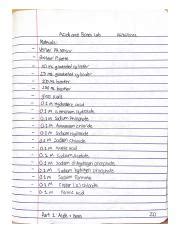 Acid and Bases Lab
Materials:
- Vernier PH sensor
- Dropper Pipette
- 10 mL graduated cylinder
- 25 mL graduated cylinder
- 250 mL beaker
- 100 mL beaker
- glass
- 0.1 M Hydrochloric acid
- 0.1 M Ammonium hydroxide
- 0.1 M Sodium Phosphate
- 0.1 M Ammonium chloride
- 0.1 M Sodium Hydroxide
- 0.1 M Sodium chloride
- 0.1 M Acetic acid
- 0.1 M Sodium Acetate
- 0.1 M Sodium dihydrogen phosphate
- 0.1 M Sodium hydrogen phosphate
- 0.1 M Sodium
- 0.1 M (III) chloride
- 0.1 M Phosphoric acid
Part 1: Acids + bases
20